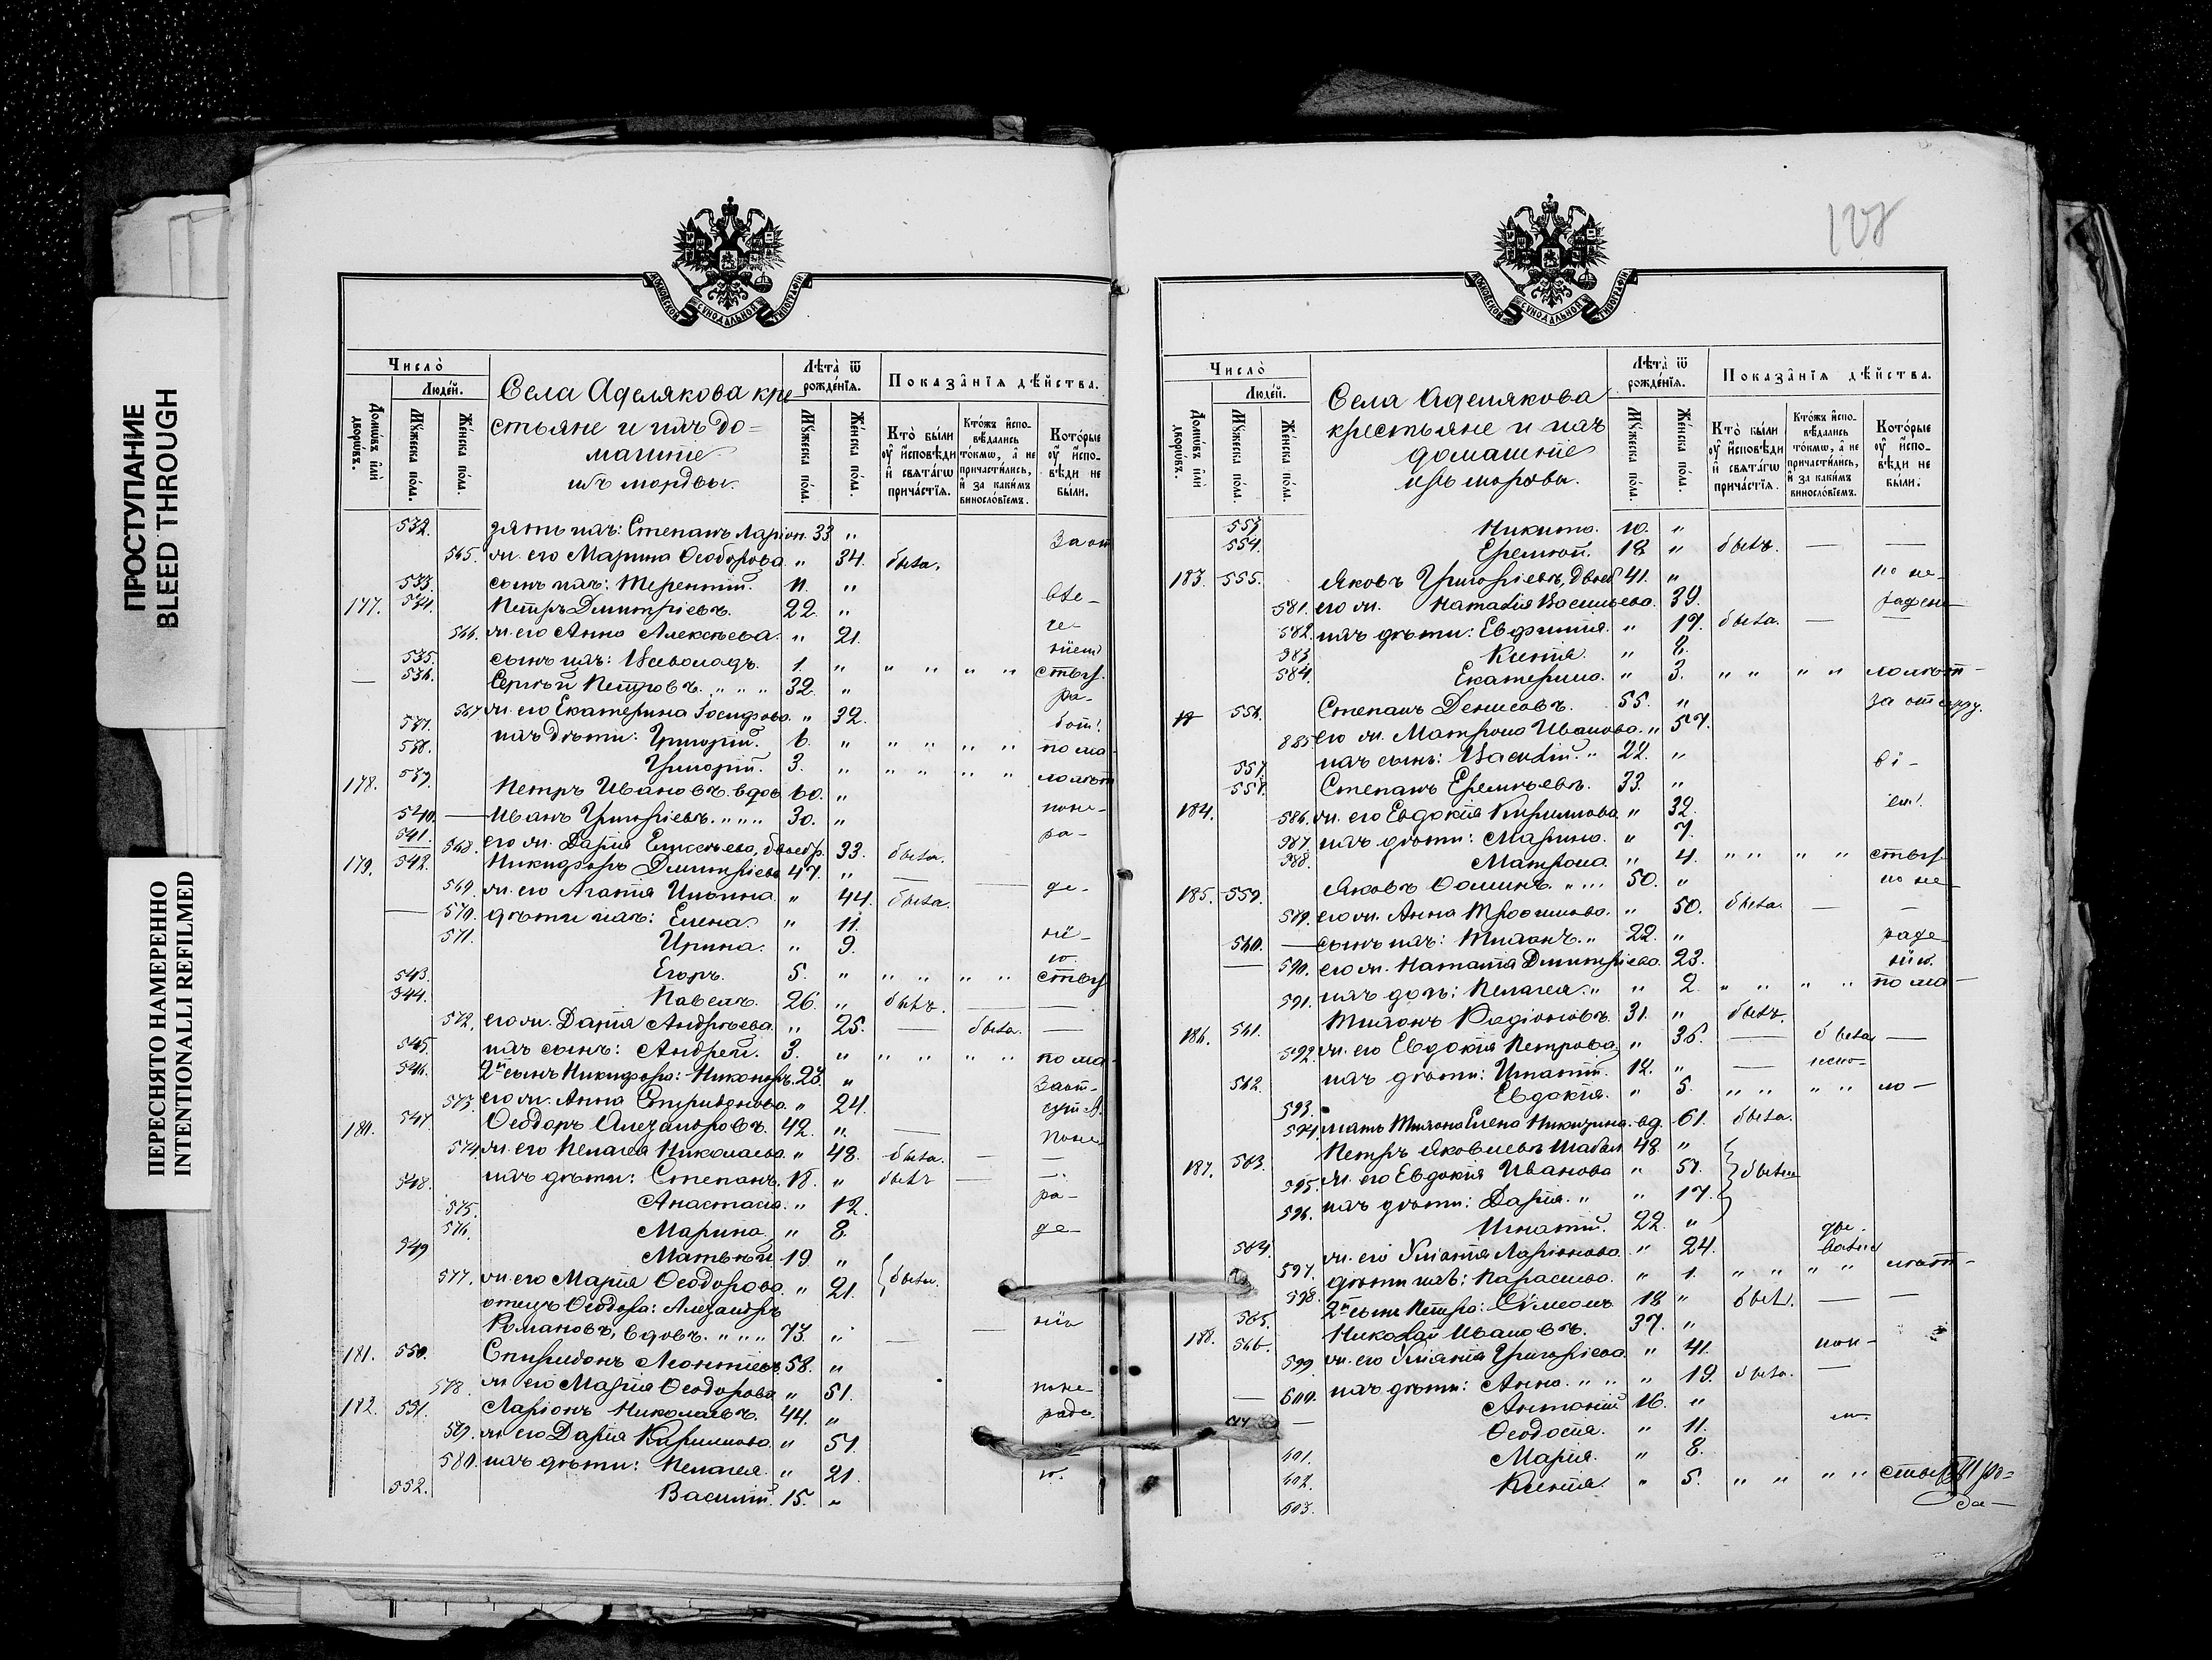 ПРОСТУПАНИЕ
BLEED THROUGH
ПЕРЕСНЯТО НАМЕРЕННО
INTENTIONALLI REFILMED
МОСКОВСКОЙ СѴНОДАЛЬНОЙ ТИПОГРАФІИ
Число̀
Люде́й.
Домѡ́въ и҆лѝ дворѡ́въ.
Мꙋ́жеска по́ла.
Же́нска по́ла.
Села Аделякова кре
стьяне и ихъ до=
машніе
изъ мордвы.
Лѣта̀ ѿ рожде́нїѧ.
Мꙋ́жеска по́ла.
Же́нска по́ла.
Показа̑нїѧ дѣ́йства.
Кто̀ бы́ли оу҆ и҆сповѣ́ди и҆ свѧта́гѡ прича́стїѧ.
Кто́жъ и҆сповѣ́дались то́кмѡ, а҆ не причасти́лись, и҆ за каки́мъ винословїемъ.
Кото́рые оу҆ и҆сповѣ́ди не бы́ли.
532. зять ихъ: Степанъ Ларіон. 33 "
565. ж. его Марина Ѳеодорова " 34. была.
533. сынъ ихъ: Терентій. 11. "
177. 534. Петръ Дмитріевъ. 22. "
566. ж. его Анна Алексѣева. " 21.
535. сынъ ихъ: Всеволодъ. 1. " " " " " ству.
— 536. Сергѣй Петровъ. " " " 32. "
567 ж. его Екатерина Іосифова. " 32.
537. ихъ дѣти: Григорій. 6. " " " " " по ма-
538. Григорій. 3. " " " " " лолѣт
178. 539. Петръ Ивановъ. вдов 60. "
540. Иванъ Григорьевъ. " " " 30. "
541. 568. его ж. Дарія Елисѣева, двоебр. 33. была.
179. 542. Никифоръ Дмитріевъ 47. "
569. ж. его Агаѳія Ильина. " 44. была.
570. дѣти ихъ: Елена. " 11.
571. Ирина. " 9.
543. Егоръ. 5. " " " " " ству
544. Павелъ. 26. " былъ.
572. его ж. Дарія Андреева. " 25. — была. —
545. ихъ сынъ: Андрей. 3. " " " " " по ма-
546. 2й сынъ Никифора: Никаноръ. 28. "
573. его ж. Анна Спиридонова. " 24.
180. 547. Ѳеодоръ Александровъ. 42. " —
574. ж. его Пелагея Николаева. " 48. была. — —
548. ихъ дѣти: Степанъ. 18. " былъ — —
575. Анастасія. " 12.
576. Марина. " 8.
549 Матвѣй 19. "
577. ж. его Марія Ѳеодорова " 21. были.
отецъ Ѳеодора: Александръ
Романовъ, вдовъ. " " " 73. "
181. 550. Спиридонъ Леонтіевъ. 58. "
578. ж. его Марія Ѳеодорова " 51.
182. 551. Ларіонъ Николаевъ. 44. "
579. ж. его Дарія Кириллова. " 51.
580. ихъ дѣти: Пелагея. " 21.
552. Василій. 15. "
МОСКОВСКОЙ СѴНОДАЛЬНОЙ ТИПОГРАФІИ
Число̀
Люде́й.
Домѡ́въ и҆лѝ дворѡ́въ.
Мꙋ́жеска по́ла.
Же́нска по́ла.
Села Аделякова
крестьяне и ихъ
домашніе
изъ мордвы.
Лѣта̀ ѿ рожде́нїѧ.
Мꙋ́жеска по́ла.
Же́нска по́ла.
Показа̑нїѧ дѣ́йства.
Кто̀ бы́ли оу҆ и҆сповѣ́ди и҆ свѧта́гѡ прича́стїѧ.
Кто́жъ и҆сповѣ́дались то́кмѡ, а҆ не причасти́лись, и҆ за каки́мъ винословїемъ.
Кото́рые оу҆ и҆сповѣ́ди не бы́ли.
553 Никита. 10. "
554. Еремѣй. 12 " былъ. — —
183. 555. Яковъ Григорьевъ, двоеб 41. " по не-
581. его ж. Наталія Васильева. 39.
582. ихъ дѣти: Евфимія. " 17. была. — —
583 Ксенія. "
584. Екатерина. " 3. " " " " лолѣт-
556. Степанъ Денисовъ. 55. "
885 его ж. Матрона Иванова. " 57.
557. ихъ сынъ: Василій. " 22. "
558. Степанъ Еремѣевъ. 33. "
184. 586. ж. его Евдокія Кириллова " 32.
587. ихъ дѣти: Марина. " 7.
588. Матрона. " 4. " " " " ству
185. 559. Яковъ Ѳоминъ. " " " 50. " по не-
589. его ж. Анна Трофимова. " 50. была. — —
560. сынъ ихъ: Тихонъ. " 22. " раде
590. его ж. Наталія Дмитріева. 23. нію.
591. ихъ дочь: Пелагея. " " 2. " " " " по ма-
186. 561. Тихонъ Родіоновъ. 31. " былъ.
592. ж. его Евдокія Петрова. " 35. — была —
562. ихъ дѣти: Игнатій. 12. " —
593. Евдокія. " 5. " " " " ло-
594. мать Тихона Елена Никитина. вд. 61. была.
187. 563. Петръ Яковлевъ 48. "
595. ж. его Евдокія Иванова " 51. были
596. ихъ дѣти: Дарія. " " 17.
564. Игнатій. 22. "
597. ж. его Уліанія Ларіонова. " 24.
598. дѣти ихъ: Параскева. " 1. " " " "
565. 2й сынъ Петра: Сѵмеонъ. 18 " былъ. — —
188. 566. Николай Ивановъ. 37. "
599 ж. его Уліанія Григорьева. " 41.
600. ихъ дѣти: Анна. " " " 19. была. —
Антоній 16. "
Ѳеодосія. " 11.
601. Марія. " 8.
602. Ксенія. " 5. " " " "
603.